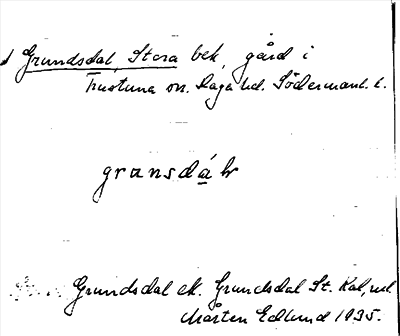 Grundsdal, Stora bek, gård i
Frustuna sn. Daga hd. Söderman. l.
grunsdáls
Grundsdal ek. Grundsdal St. Kal, red
Mårten Edlund 1935.